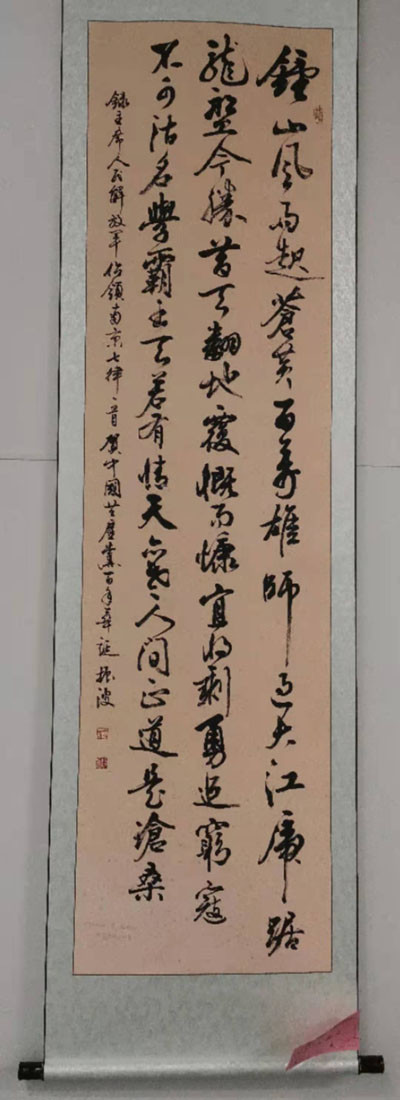 鐘山风雨起蒼黄百萬雄師过大江虎踞
龍盤今勝昔天翻地覆慨而慷宜将剩勇追窮寇
不可沽名學霸王天若有情天亦老人间正道是滄桑
録主席人民解放军佔領南京七律一首賀中國共產黨百年華誕振波